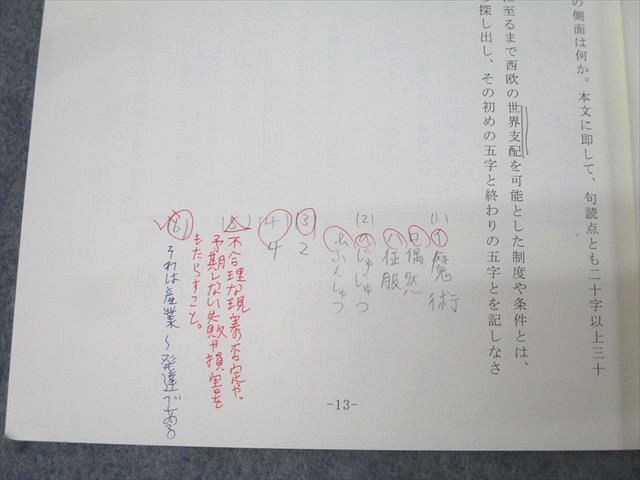 の側面は何か。本文に即して、句読点とも二十字以上三十
に至るまで西欧の世界支配を可能とした制度や条件とは、
探し出し、その初めの五字と終わりの五字とを記しなさ
(1)
イ魔術
ロ偶然
ハ征服
(2)
のじゅじゅつ
ぶんしゅつ
(3)
2
(4)
4
(5)
不合理な現実の否定や、
予期しない失敗や損害を
もたらすこと。
(6)
それは産業～発達である
-13-